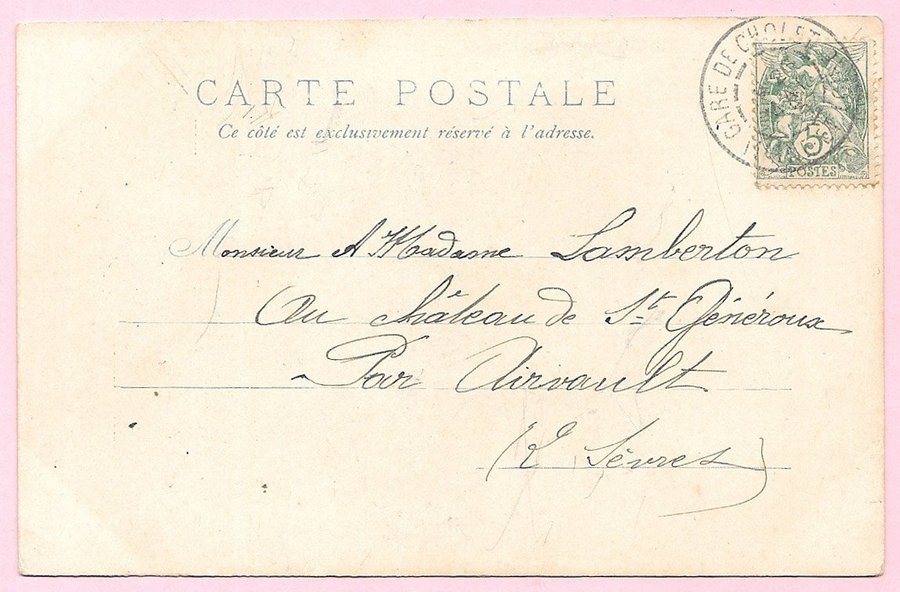 GARE DE CHOLET
5c
POSTES
CARTE POSTALE
Ce côté est exclusivement réservé à l'adresse.
Monsieur & Madame Lamberton
Au château de St Généroux
Par Airvault
(2 Sèvres)